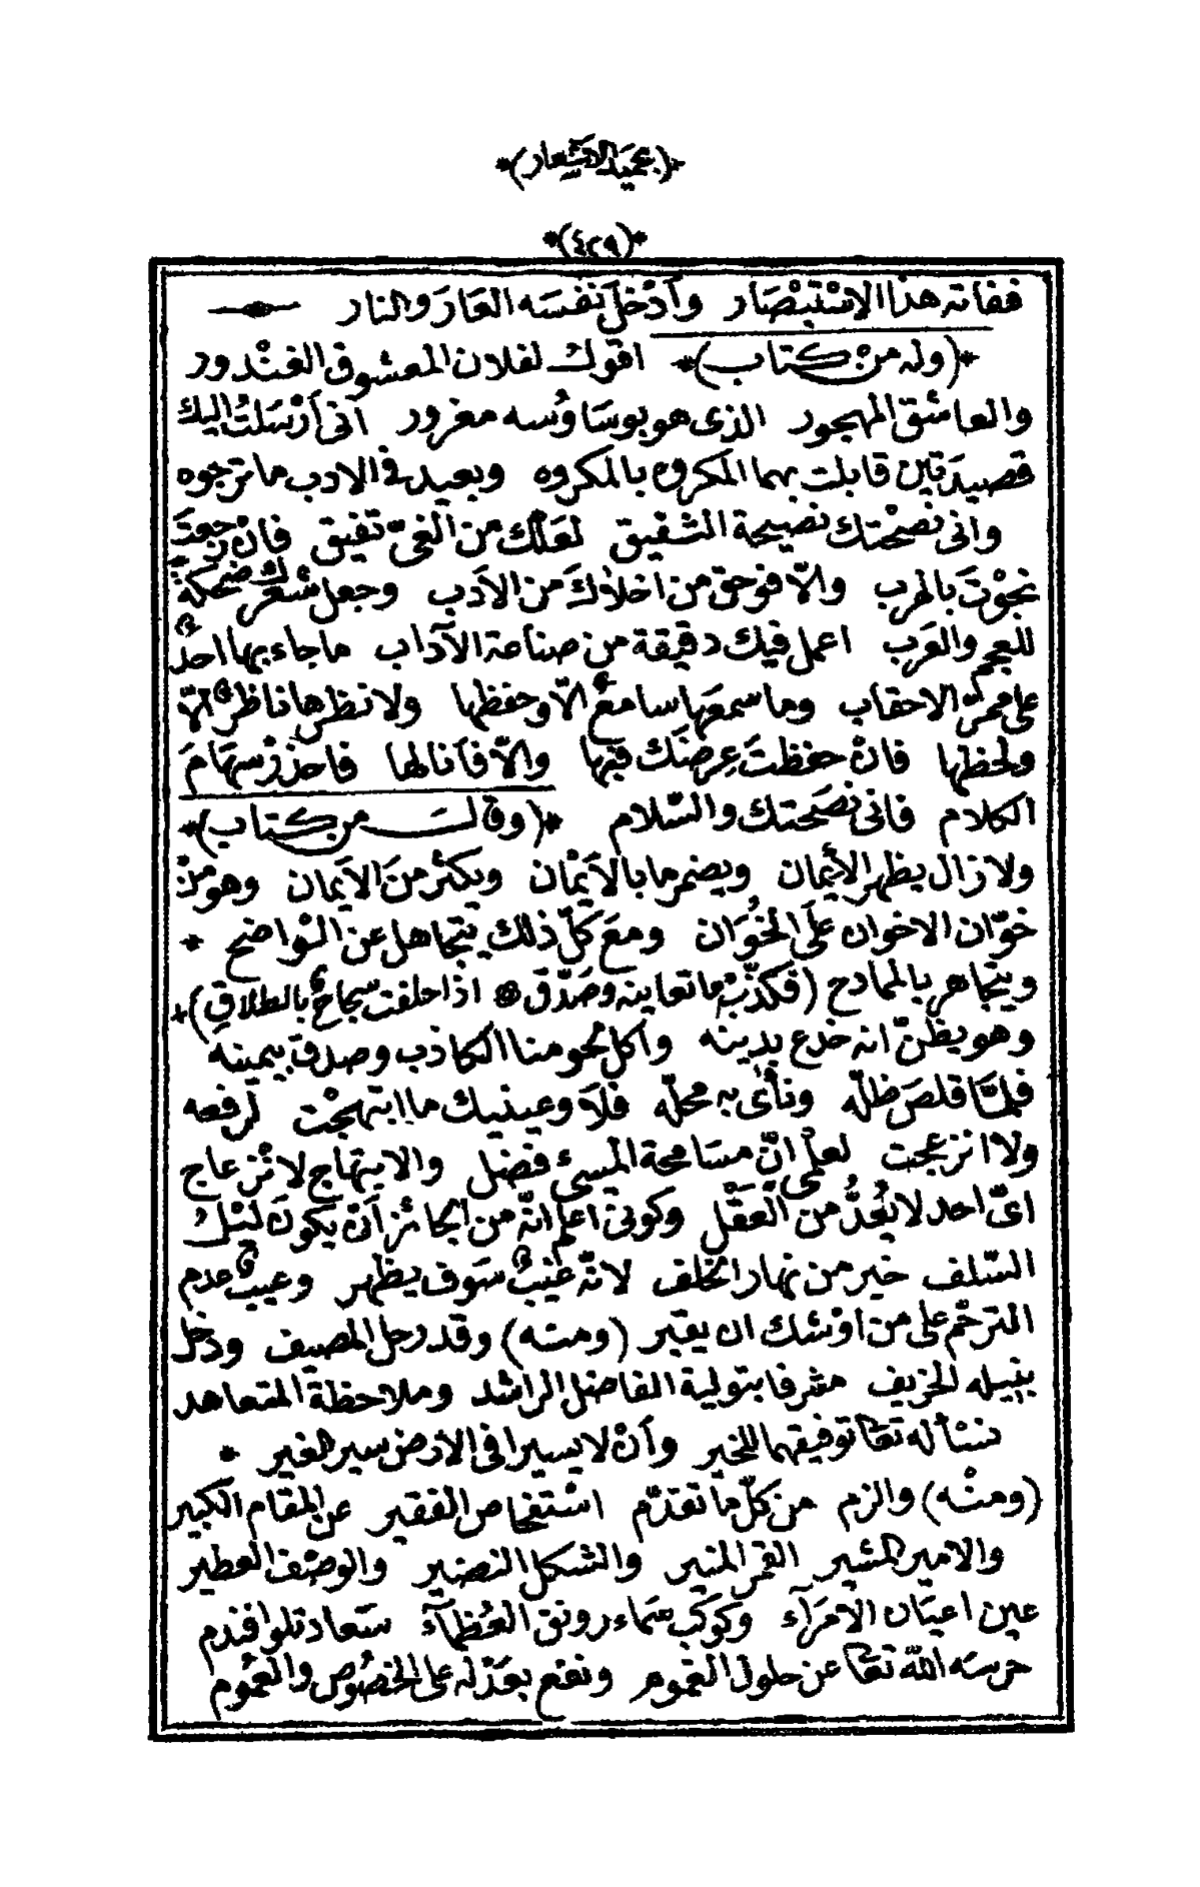 *(عميد الاشعار)*
*(٤٢٩)*
ففاته هذا الاسْتبْصَار وأدْخلَ نفسَه العَارَ والنار
*(وله من كتاب)* اقول لفلان المعشوق الغنْدور
والعاشق المهجور الذى هو بوسَاوُسه مغرور انى أرْسَلتُ اليك
قصيدَتين قابلت بهما المكروه بالمكروه وبعيد فى الادب ما ترجوه
وانى نصَحْتك نصيحة الشفيق لعَلّك من الغىّ تفيق فانْ رجعتَ
نجوْتَ بالهرب والّا فوحق من اخلاكَ من الأدب وجعل شعْرك ضحكة
للعجم والعَرب اعمل فيك دقيقة من صناعة الآداب ما جاء بها احدٌ
على ممرّ الاحقاب وما سمعَها سامعٌ الّا وحفظها ولا نظرها ناظرٌ الّا
ولحظها فانْ حفظتَ عِرضَك فبها والّا فأنا لها فاحذرْ سهَامَ
الكلام فانى نصَحتك والسّلام *(وقالَ من كتاب)*
ولا زال يظهر الأيمان ويضمر ما بالأيْمان ويكثر منَ الايمان وهو منْ
خوّان الاخوان علَى الخُوَان ومعَ كلّ ذلك يتجاهل عن الواضح *
ويتجاهر بالممادح (فكذّبْ ما تعاينه وصَدّق * اذا حلفت سجاحٌ بالطلاقِ)*
وهو يظنّ انه خدع بدينه واكل لحومنا الكاذب وصدق بيمينه
فلمّا قلصَ ظلّه ونأى به محلّه فلَا وعينيك ما ابتهجْت لرفعه
ولا انزعجت لعلْمى انّ مسَامحة المسىء فضل والابتهاج لانْزعاج
اىّ احد لا يُعَدُّ من الْعَقْل وكونى اعلم انّه من الجائز أنْ يكونَ ليْلُ
السّلف خير من نهار الخلف لانّه غيْبٌ سَوف يظهر وعيبٌ عدم
الترحّم على من اوْشك ان يقبر (ومنه) وقد رحل المصيف ودخل
بنيله الخريف مشرفا بتولية الفاضل الراشد وملاحظة المتعاهد
نسْأله تعَا توفيقهما للخير وأنْ لا يسيرا فى الارض سير الغير *
(ومنْه) والزم من كلّ ما تقدّم اسْتفحاص الفقير عن المقام الكبير
والامير المشير القمر المنير والشكل النضير والوصْف العطير
عين اعيان الامرَآء وكوكب سَماء رونق العُظمآء سَعادتلو افندم
حرسَه اللّه تعَا عن حلول الغموم ونفع بعَدْله على الخصُوص والعُموم